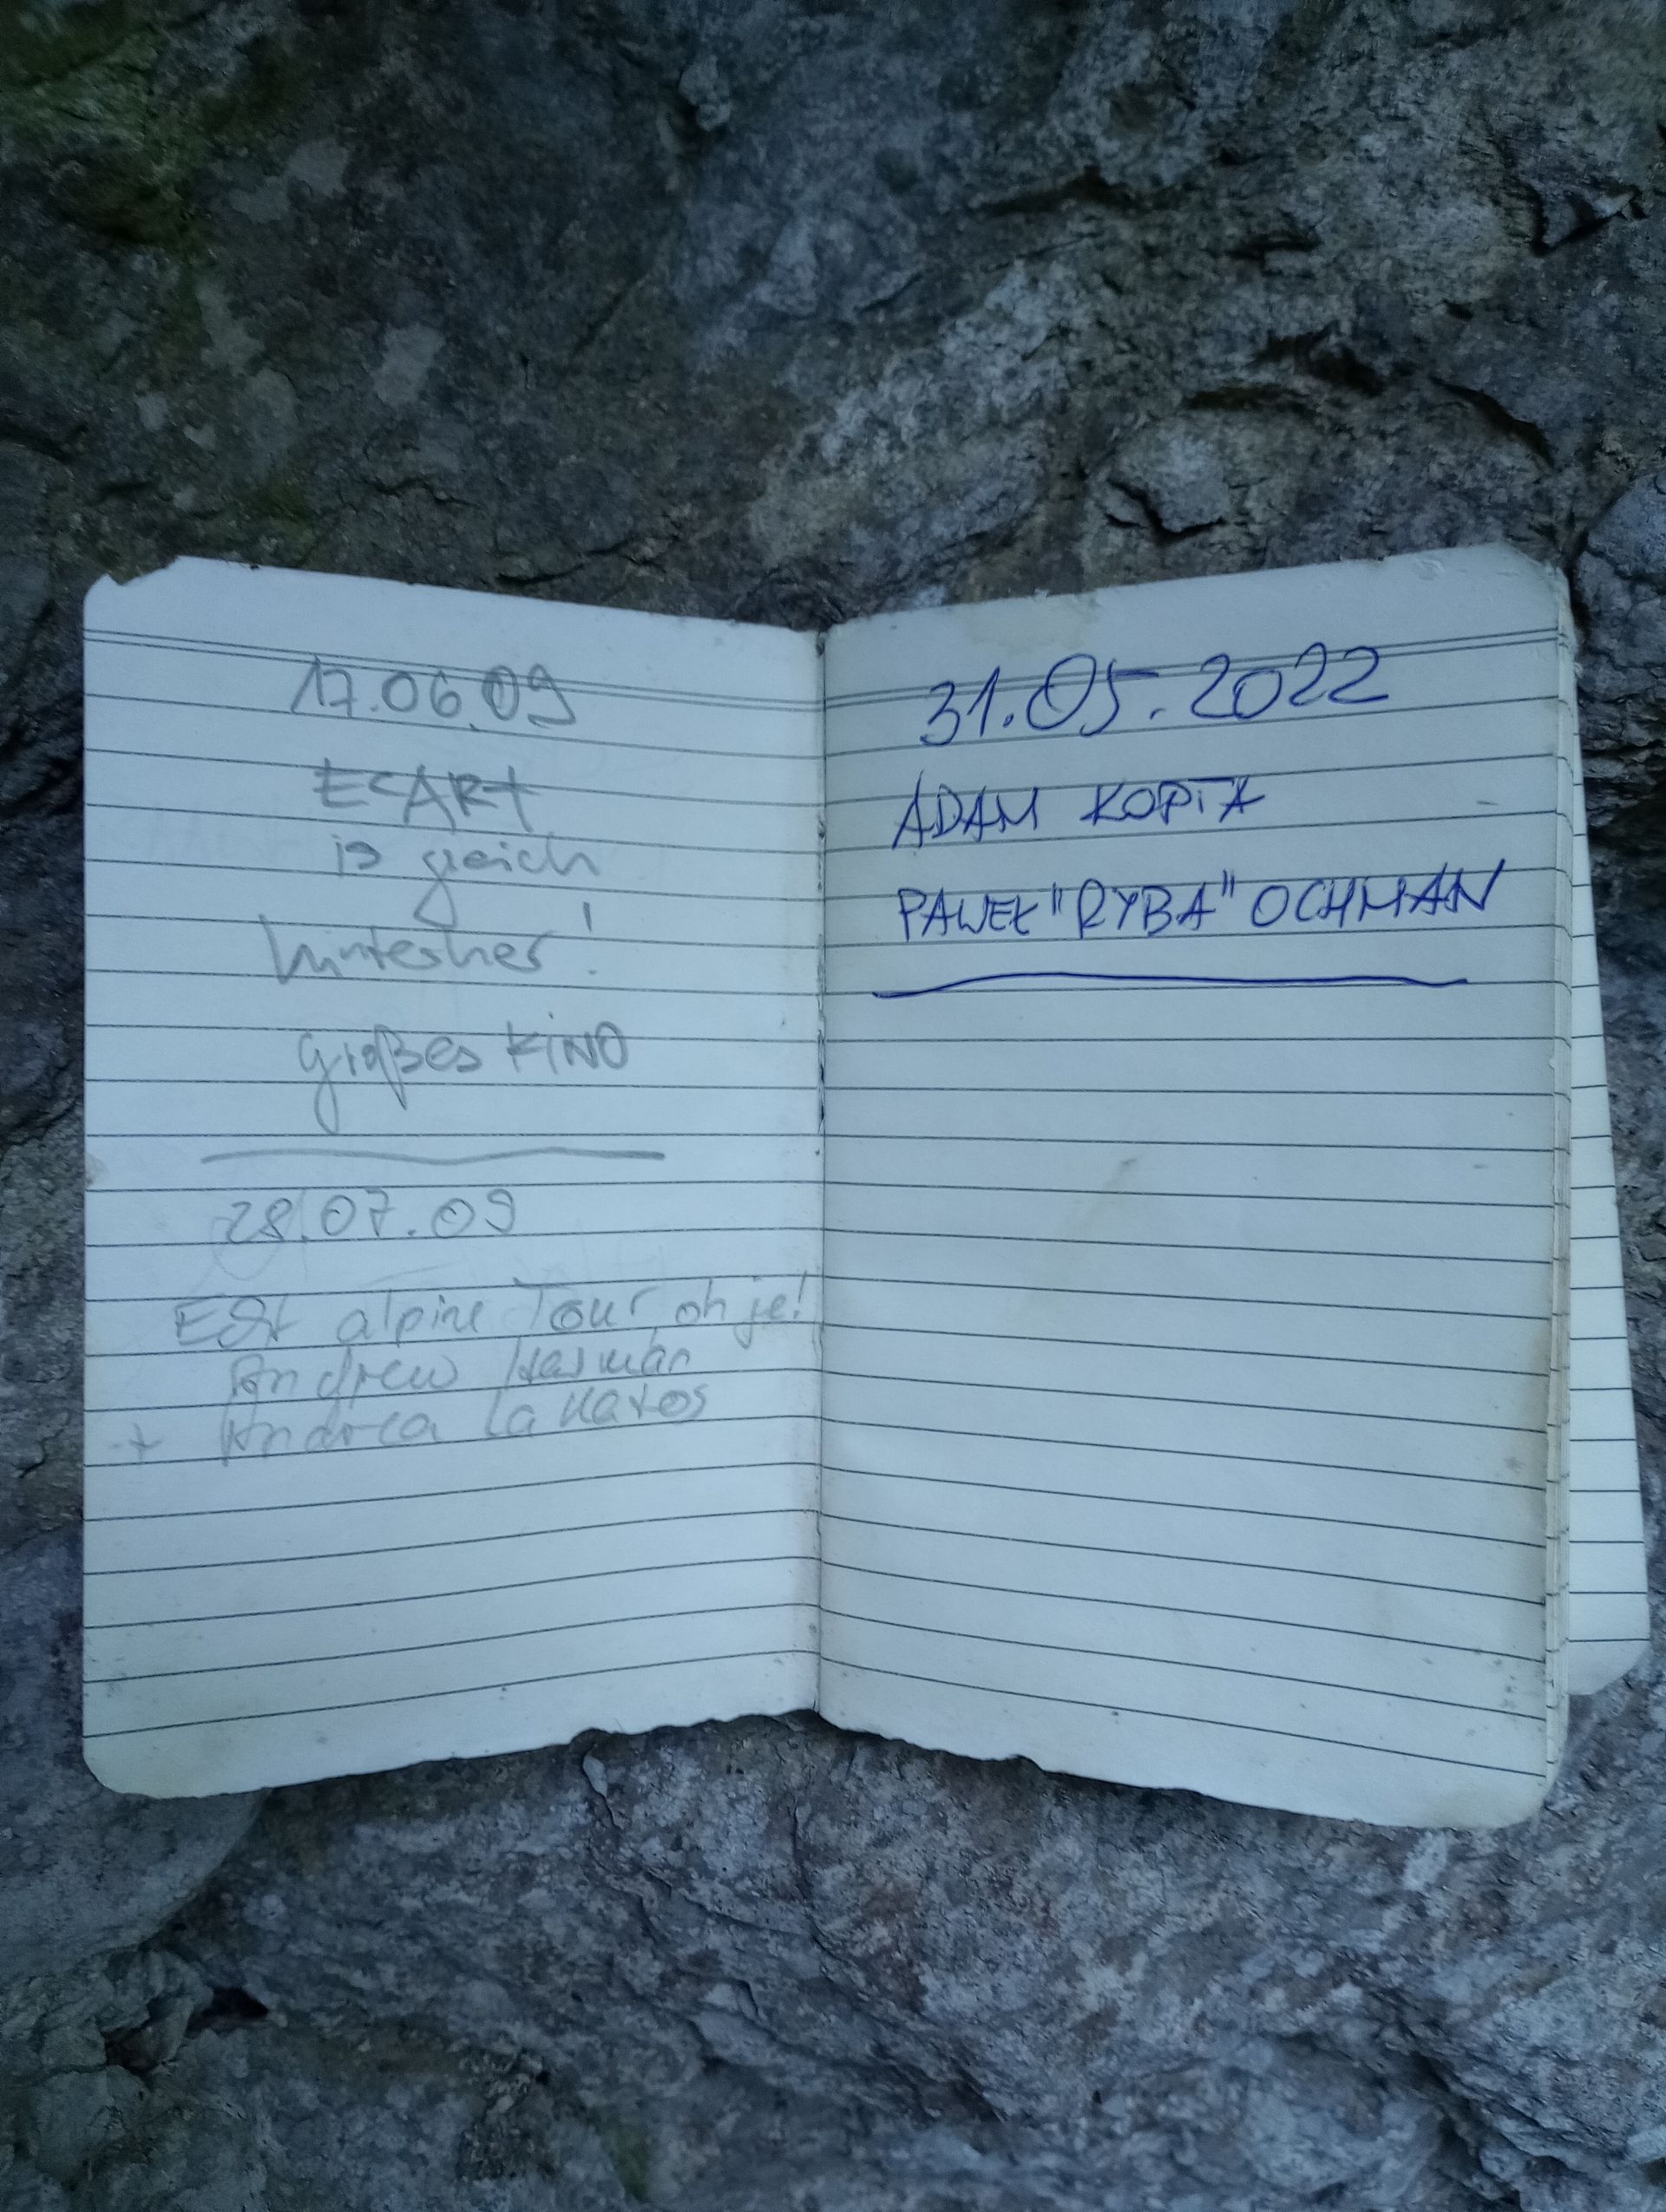 17.06.09
ECART
is gleich
hinterher!
großes KiNO
28.07.09
alpine Tour, oh je!
Andrew
+ Andrea
31.05.2022
ADAM KOPTA
PAWEŁ "RYBA" OCHMAN